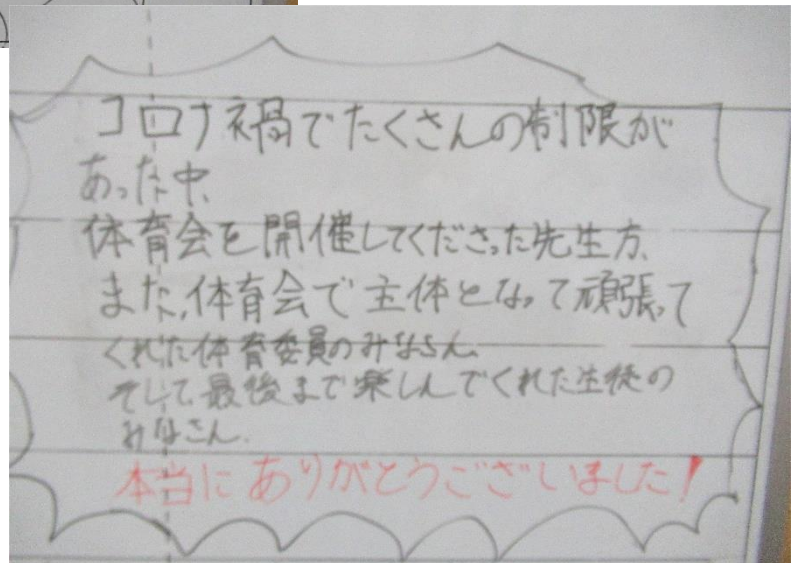 コロナ禍でたくさんの制限が
あった中、
体育会を開催してくださった先生方、
また、体育会で主体となって頑張って
くれた体育委員のみなさん、
そして最後まで楽しんでくれた生徒の
みなさん、
本当にありがとうございました!